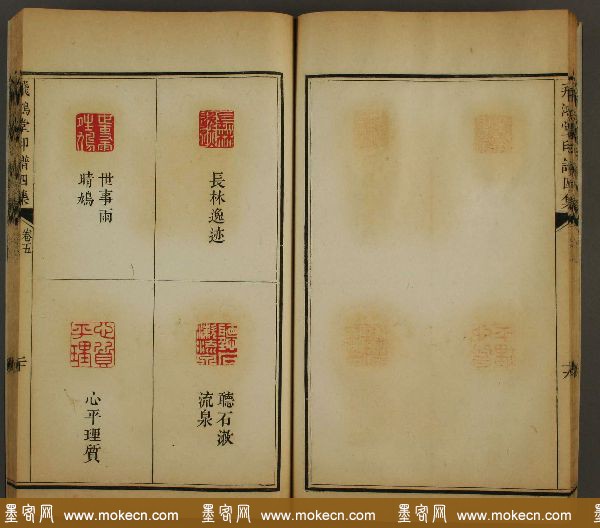 長林逸迹
世事雨
晴鳩
聽石
流泉
心平理質
飛鴻堂印譜四集
卷五
飛鴻堂印譜四集
墨客网 www.mokecn.com 墨客网 www.mokecn.com 墨客网 www.mokecn.com 墨客网